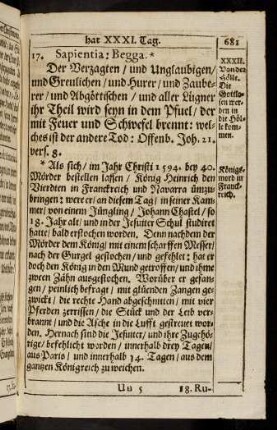 hat XXXI. Tag.
681
17. Sapientia; Begga. *
Der Verzagten / und Unglaubigen /
und Greulichen / und Hurer / und Zaube-
rer / und Abgöttischen / und aller Lügner
ihr Theil wird seyn in dem Pfuel / der
mit Feuer und Schwefel brennt: wel-
ches ist der andere Tod: Offenb. Joh. 21.
vers. 8.
XXXII.
Von der
Hölle.
Die
Gottlo-
sen wer-
den in
die Höl-
le kom-
men.
* Als sich / im Jahr Christi 1594. bey 40.
Mörder bestellen lassen / König Heinrich den
Vierdten in Franckreich und Navarra ümzu-
bringen; were er / an diesem Tag / in seiner Kam-
mer / von einem Jüngling / Johann Chastel / so
18. Jahr alt / und in der Jesuiter Schul studiret
hatte / bald erstochen worden. Denn nachdem der
Mörder dem König / mit einem scharffen Messer /
nach der Gurgel gestochen / und gefehlet; hat er
doch den König in den Mund getroffen / und ihme
zween Zähn ausgestochen. Worüber er gefan-
gen / peinlich befragt / mit glüenden Zangen ge-
zwickt / die rechte Hand abgeschnitten / mit vier
Pferden zerrissen / die Stück und der Leib ver-
brannt / und die Asche in die Lufft gestreuet wor-
den. Hernach sind die Jesuiter / und ihre Zugehö-
rige / befehlicht worden / innerhalb drey Tagen /
aus Paris / und innerhalb 14. Tagen / aus dem
gantzen Königreich zu weichen.
Königs-
mord in
Franck-
reich.
Uu 5
18. Ru-